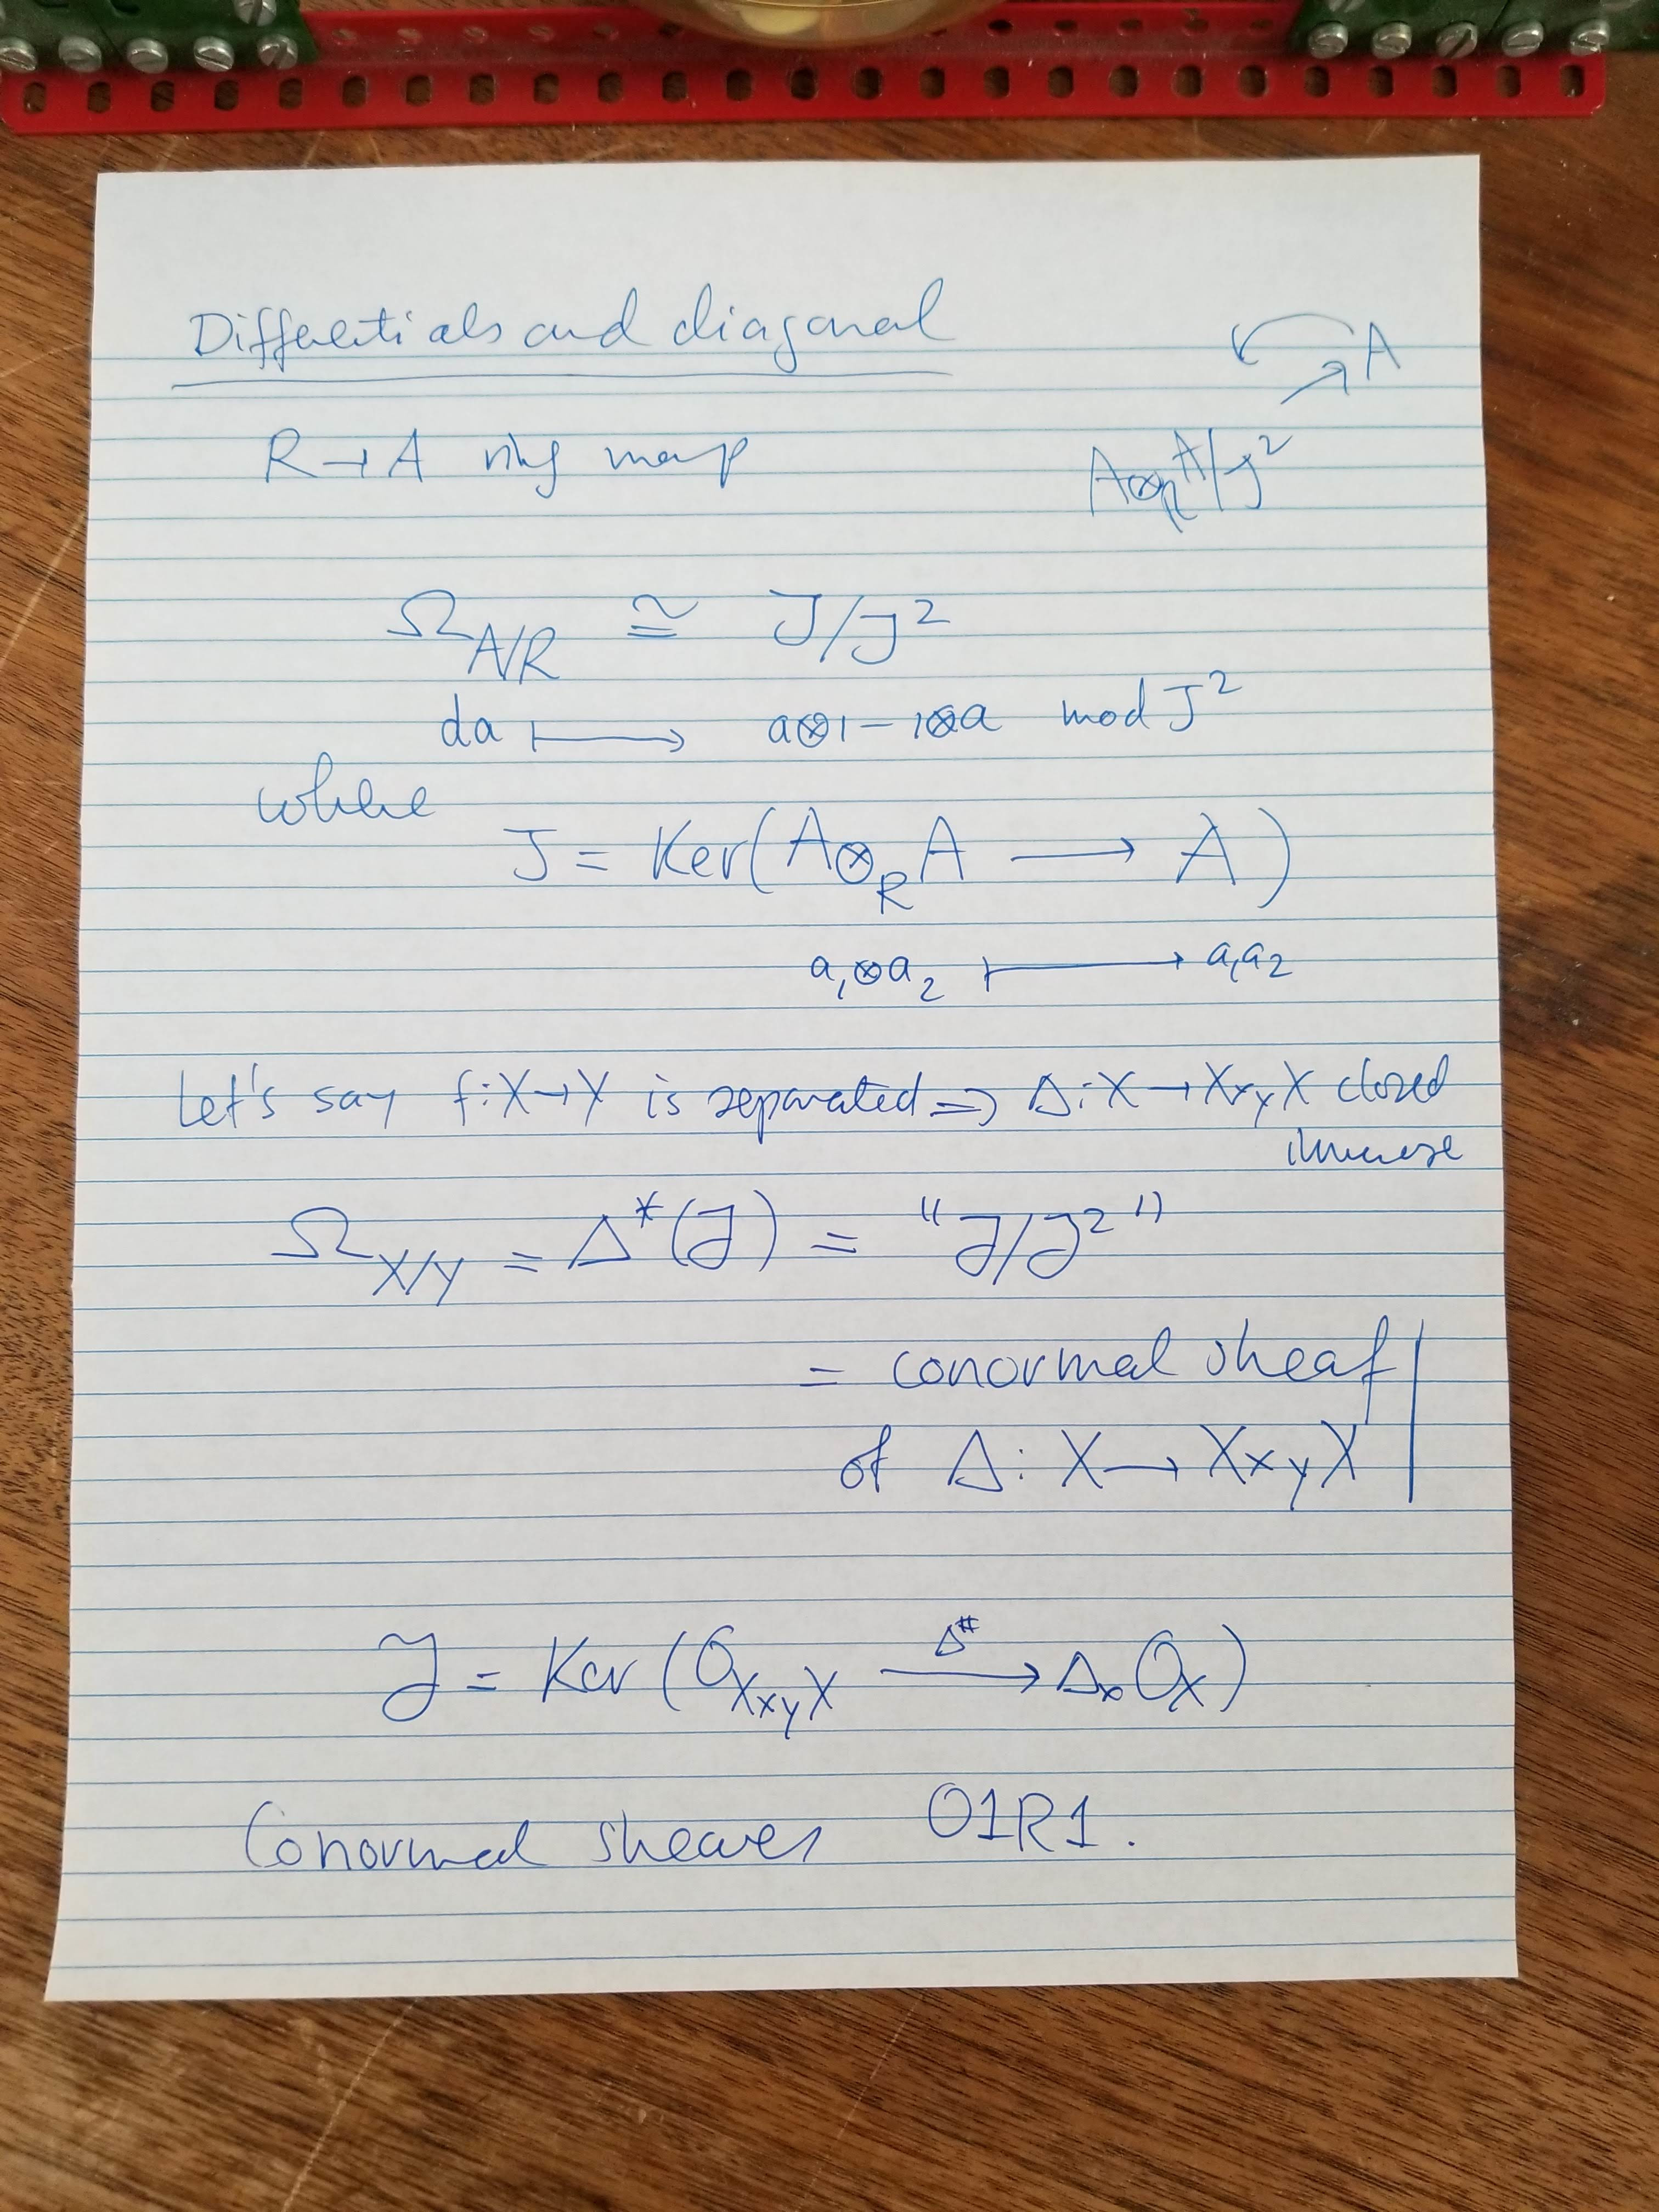 Differentials and diagonal
A
R → A ring map
A⊗_R A/J²
Ω_{A/R} ≅ J/J²
da ⟼ a⊗1 − 1⊗a mod J²
where
J = Ker(A⊗_R A ⟶ A)
a₁⊗a₂ ⟼ a₁a₂
Let's say f: X → Y is separated ⇒ Δ: X → X×_Y X closed
immerse
Ω_{X/Y} = Δ*(J) = "J/J²"
= conormal sheaf
of Δ: X → X×_Y X
J = Ker(O_{X×_Y X} ⟶^{Δ^#} Δ_* O_X)
Conormal sheaves 01R1.